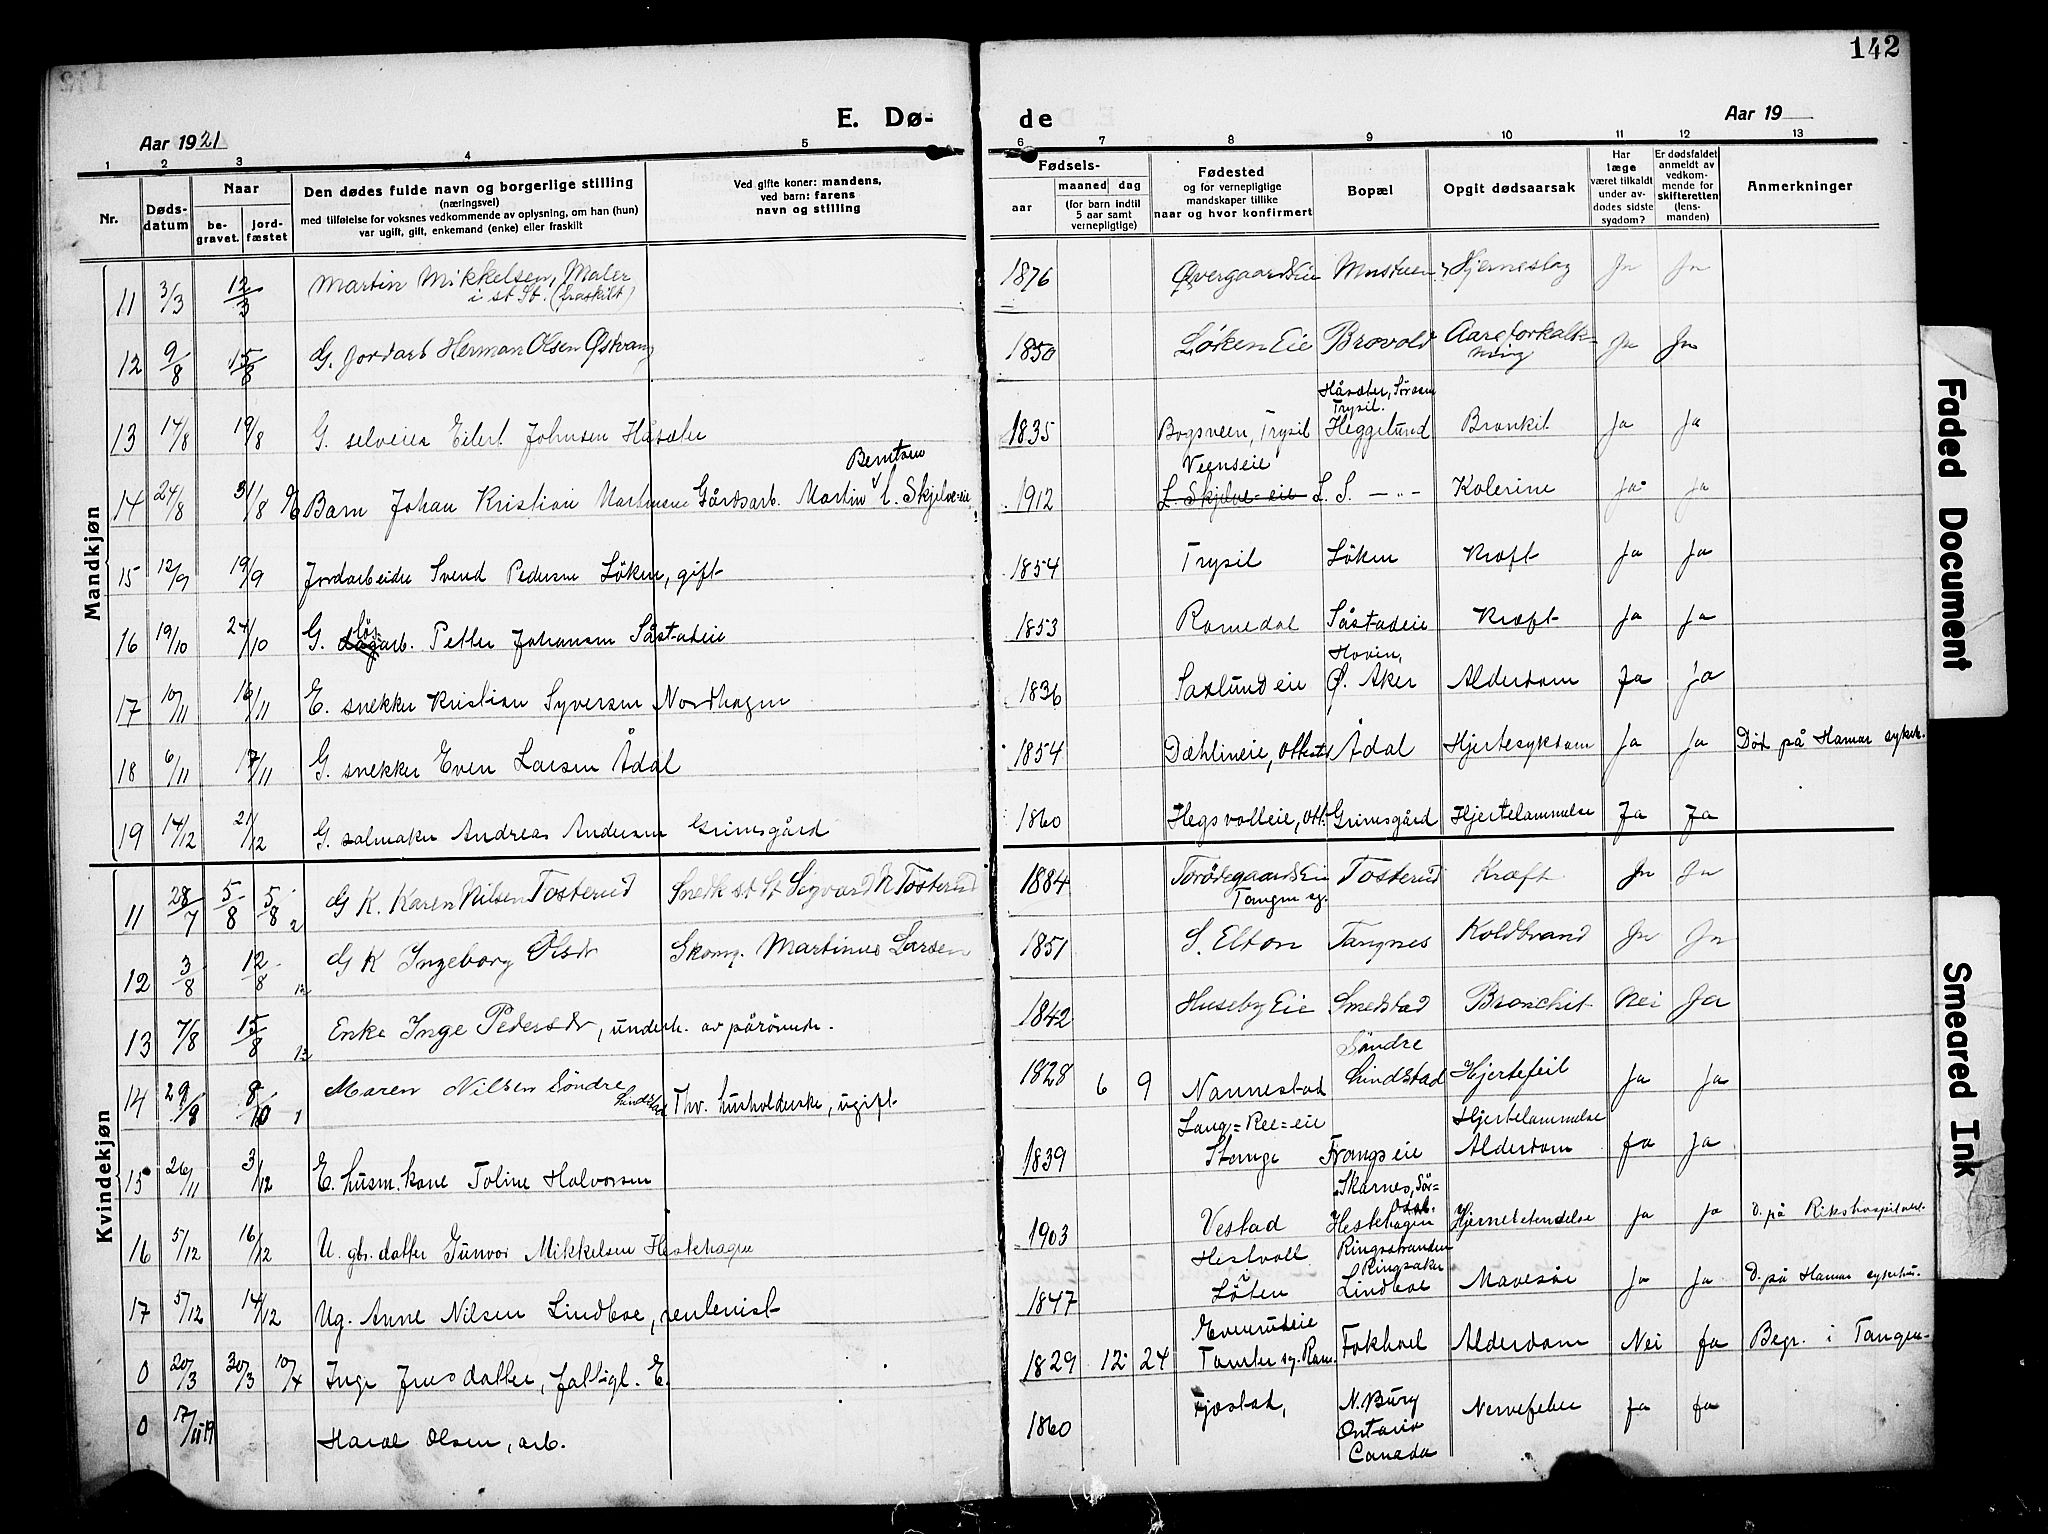 142
E. Dø-
de
Aar 1921
Aar 19
1 2 3 4 5 6 7 8 9 10 11 12 13
Nr.
Dødsdatum
Naar
begravet.
jordfæstet
Den dødes fulde navn og borgerlige stilling
(næringsvei)
med tilføielse for voksnes vedkommende av oplysning, om han (hun)
var ugift, gift, enkemand (enke) eller fraskilt
Ved gifte koner: mandens,
ved barn: farens
navn og stilling
Fødsels-
aar
maaned dag
(for barn indtil
5 aar samt
vernepligtige)
Fødested
og for vernepligtige
mandskaper tillike
naar og hvor konfirmert
Bopæl
Opgit dødsaarsak
Har
læge
været tilkaldt
under avdødes
sidste
sygdom?
Er dødsfaldet
anmeldt av
vedkommende
for
skifteretten
(lensmanden)
Anmerkninger
Mandkjøn
11 3/3 12/3 Martin Mikkelsen, Maler i st St. (fraskilt) 1876 Øvergaards Eie Hjerneslag Ja Ja
12 9/8 15/8 G. Jordarb Herman Olsen Østvang 1850 Løken Eie Brovold Aareforkalkning Ja Ja
13 14/8 19/8 G. selveier Eilert Johnsen Håsæter 1835 Bogsveen, Trysil Håsæter, Sørskou Trysil. Heggelund Bronkit Ja Ja
14 24/8 31/8 Barn Johan Kristian Martinsen Gårdsarb. Martin Berntsen L. Skjelve-eie 1912 Veenseie L. Skjelve-eie L. S. -"- Kolerine Ja Ja
15 12/9 19/9 Jordarbeider Svend Pedersen Löken, gift 1854 Trysil Löken Kræft Ja Ja
16 19/10 24/10 G. løsarb. Petter Johansen Såstadeie 1853 Romedal Såstadeie Kræft Ja Ja
17 10/11 16/11 E. snekker Kristian Syversen Nordhagen 1836 Saxlundeie Hovin, Ø. Aker Alderdom Ja Ja
18 6/11 17/11 G. snekker Even Larsen Ådal 1854 Dæhlineie, Ottestad Ådal Hjertesykdom Ja Ja Död på Hamar sykeh.
19 14/12 21/12 G. salmaker Andreas Andersen Grimsgård 1860 Hegsvolleie, Ott. Grimsgård Hjertelammelse Ja Ja
Kvindekjøn
11 28/7 5/8 5/8 2 G K. Karen Nilsen Tosterud Smed st St Sigvard N Tosterud 1884 Torødegaards Eie Tangen sg. Tosterud Kræft Ja Ja
12 3/8 12/8 12 G K Ingeborg Olsdr Skom. Martinus Larsen 1851 S. Elton Tangnes Koldbrand Ja Ja
13 7/8 15/8 12 Enke Inge Pedersdr, underh. av pårörende. 1842 Huseby Eie Smedstad Bronchit Nei Ja
14 29/9 8/10 1 Maren Nilsen Söndre Lindstad Thv. husholderske, ugift 1828 6 9 Nannestad Söndre Lindstad Hjertefeil Ja Ja
15 26/11 3/12 E. husm. kone Toline Halvorsen 1839 Lang-Ree-eie Stange Frangseie Hjertelammelse Alderdom Ja Ja
16 5/12 16/12 U. gbr. datter Gunvor Mikkelsen Hestehagen 1903 Vestad Skarnes, Sör-Odal. Hestehagen Hjernebetendelse Ja Ja D. på Rikshospitalet.
17 5/12 14/12 Ug. Anne Nilsen Lindboe, rentenist 1847 Hestvoll i Löten Ringsstranden Ringsaker Lindboe Mavesår Ja Ja D. på Hamar sykehus.
0 20/3 30/3 10/4 Inge Jensdatter, fattigl. E. 1829 12 24 Evenrudeie Tomter sg. Rom. Fokhoel Alderdom Nei Ja Begr. i Tangen.
0 17/11 19 Harol Olsen, arb. 1860 Fjæstad, N. Burg Ontario Canada Nervefeber Ja Ja
Faded Document
Smeared Ink